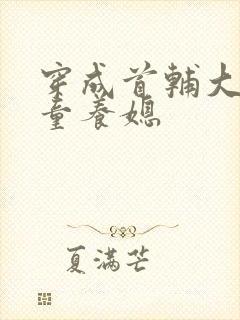 穿成首辅大
童养媳
夏满芒